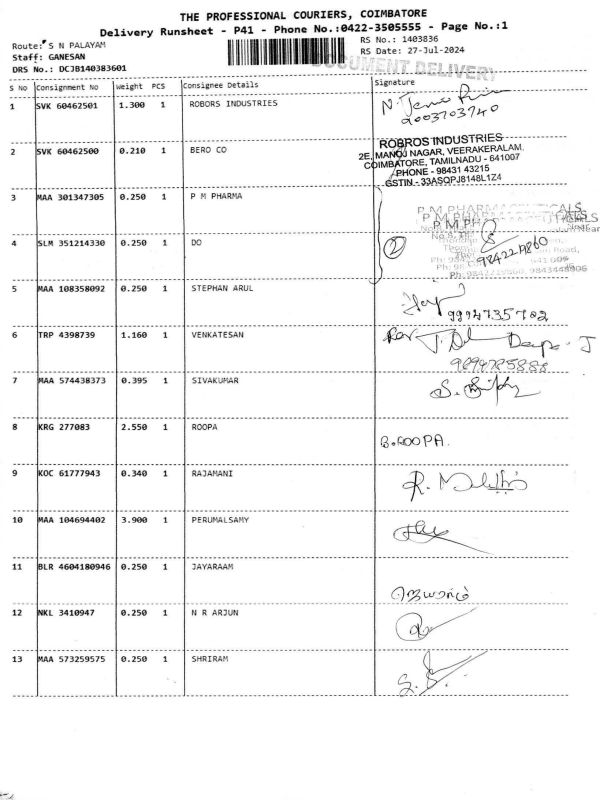 THE PROFESSIONAL COURIERS, COIMBATORE
Delivery Runsheet - P41 - Phone No.:0422-3505555 - Page No.:1
Route: S N PALAYAM
RS No.: 1403836
Staff: GANESAN
RS Date: 27-Jul-2024
DRS No.: DCJB140383601
DOCUMENT DELIVERY
S No Consignment No Weight PCS Consignee Details Signature
1 SVK 60462501 1.300 1 ROBORS INDUSTRIES
2003703740
ROBROS INDUSTRIES
2E, MANOJ NAGAR, VEERAKERALAM,
COIMBATORE, TAMILNADU - 641007
PHONE - 98431 43215
GSTIN - 33ASQPJ8148L1Z4
2 SVK 60462500 0.210 1 BERO CO
3 MAA 301347305 0.250 1 P M PHARMA
P M PHARMACEUTICALS
4 SLM 351214330 0.250 1 DO
2
9842219860
5 MAA 108358092 0.250 1 STEPHAN ARUL
9994735702
6 TRP 4398739 1.160 1 VENKATESAN
9894785888
7 MAA 574438373 0.395 1 SIVAKUMAR
8 KRG 277083 2.550 1 ROOPA
B.ROOPA.
9 KOC 61777943 0.340 1 RAJAMANI
10 MAA 104694402 3.900 1 PERUMALSAMY
11 BLR 4604180946 0.250 1 JAYARAAM
ஜெயராம்
12 NKL 3410947 0.250 1 N R ARJUN
13 MAA 573259575 0.250 1 SHRIRAM